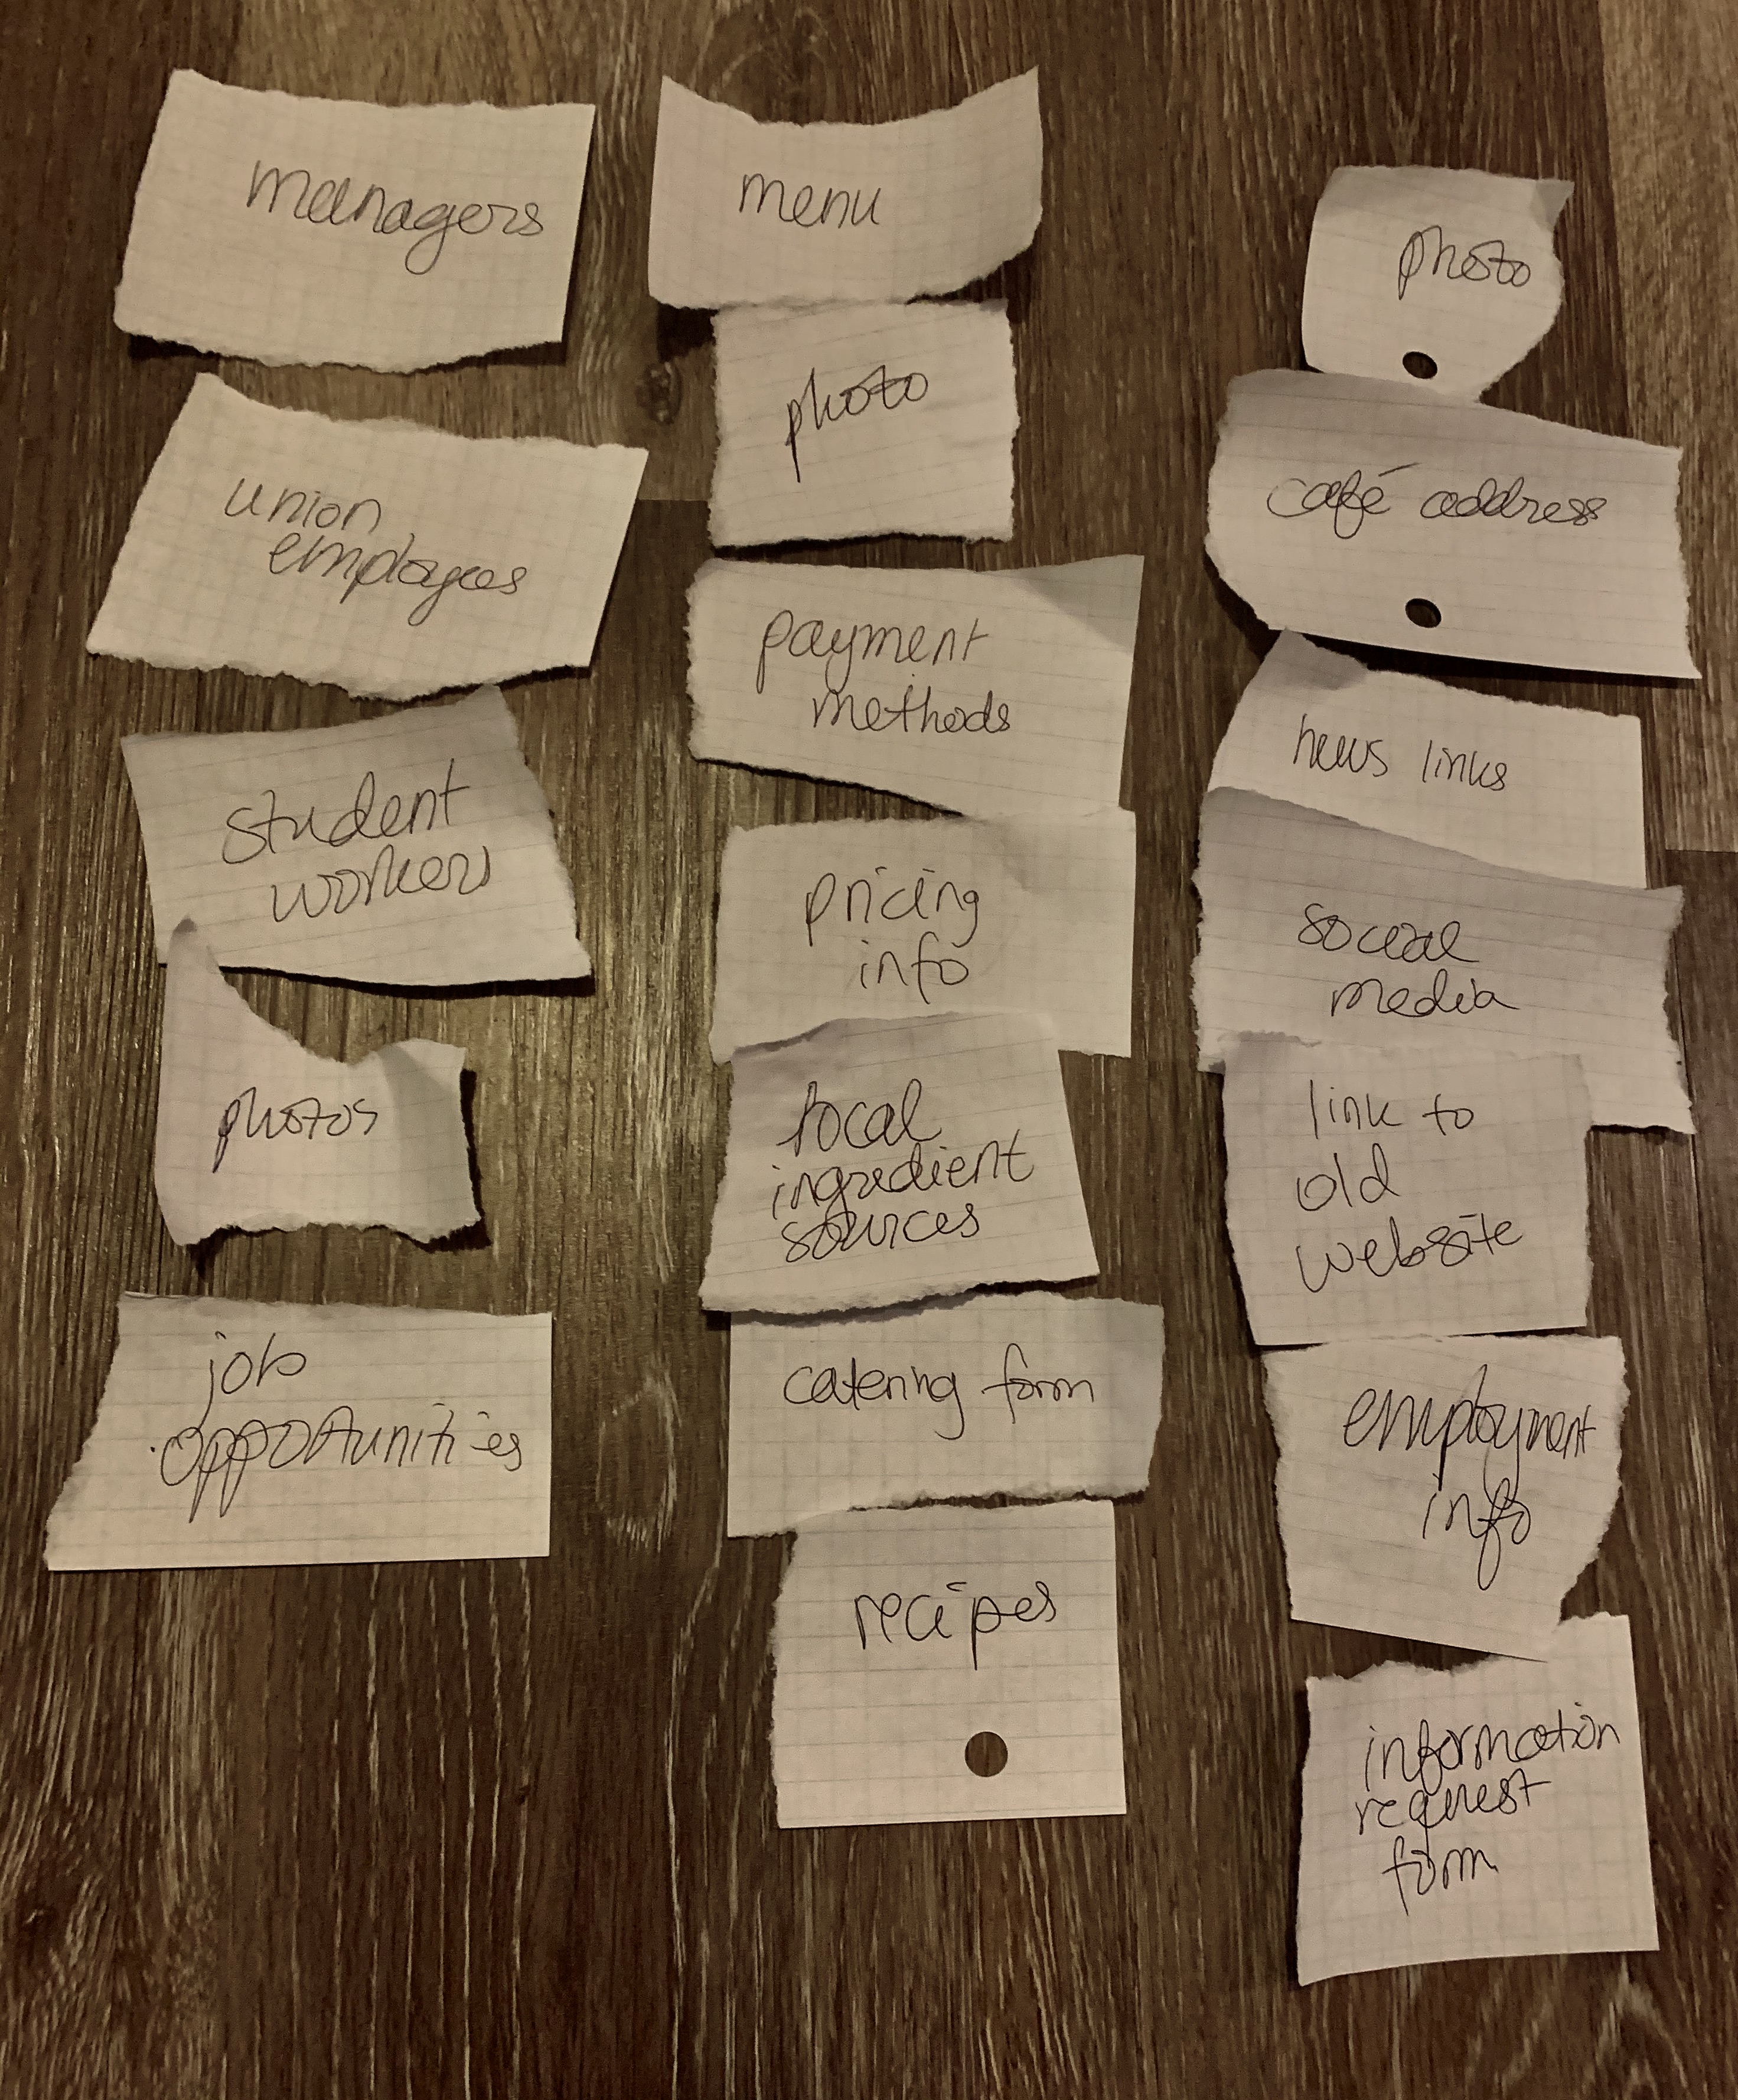 managers
union
employees
student
workers
photos
job
opportunities
menu
photo
payment
methods
pricing
info
local
ingredient
sources
catering form
recipes
photo
café address
news links
social
media
link to
old
website
employment
info
information
request
form